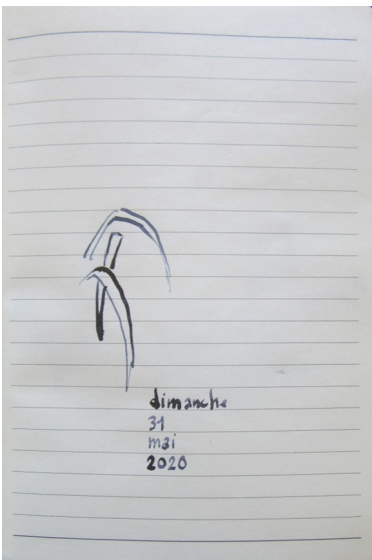 dimanche
31
mai
2020